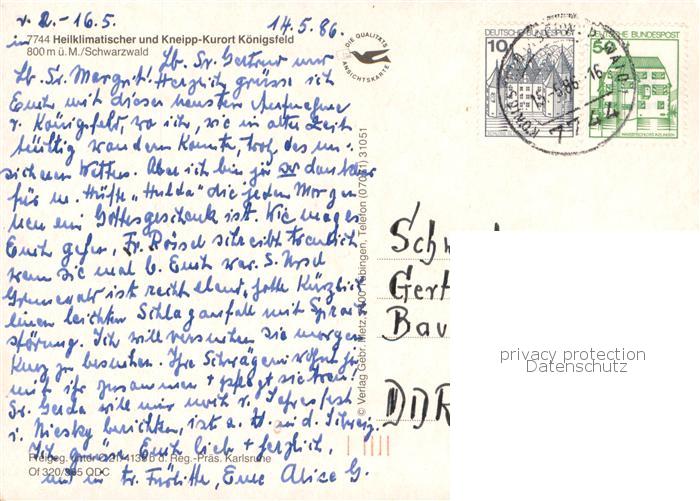 v. 2.-16.5. 14.5.86.
in 7744 Heilklimatischer und Kneipp-Kurort Königsfeld
800 m ü.M./Schwarzwald
DIE QUALITÄTS
ANSICHTSKARTE
Lb. Sr. Gertrud und
Lb. Sr. Margrit! Herzlich grüsse ich
Euch mit dieser neusten Aufnahme
v. Königsfeld, wo ich, wie in alter Zeit
tüchtig wandern konnte, trotz des un-
sicheren Wetters. Aber ich bin ja so dankbar
für m. Hüfte "Hulda" die jeden Morgen
neu ein Gottesgeschenk ist. Wie mag es
Euch gehen, Fr. schreibt treulich
wann sie mal b. Euch war. S. Ursel
Grunewald ist recht elend, hatte kürzlich
einen leichten Schlaganfall mit Sprach-
störung. Ich will versuchen sie morgen
kurz zu besuchen. Ihre Schwägerin wohnt ja
mit ihr zusammen + pflegt sie treu.
Sr. Gerda will mir noch v. Jahresfest
i. Niesky berichten, ist a. in d. Schweiz.
Ich grüsse Euch lieb + herzlich,
auf in tr. Fürbitte, Eure Alice G.
Freigeg. unter
d. Reg.-Präs. Karlsruhe
Of 320/365 QDC
© Verlag Gebr. Metz, 7400 Tübingen, Telefon (07071) 31051
10 DEUTSCHE BUNDESPOST
50 DEUTSCHE BUNDESPOST
WASSERSCHLOSS INZLINGEN
-5.86-16
7744
Sch
Gert
Bau
DDR
privacy protection
Datenschutz